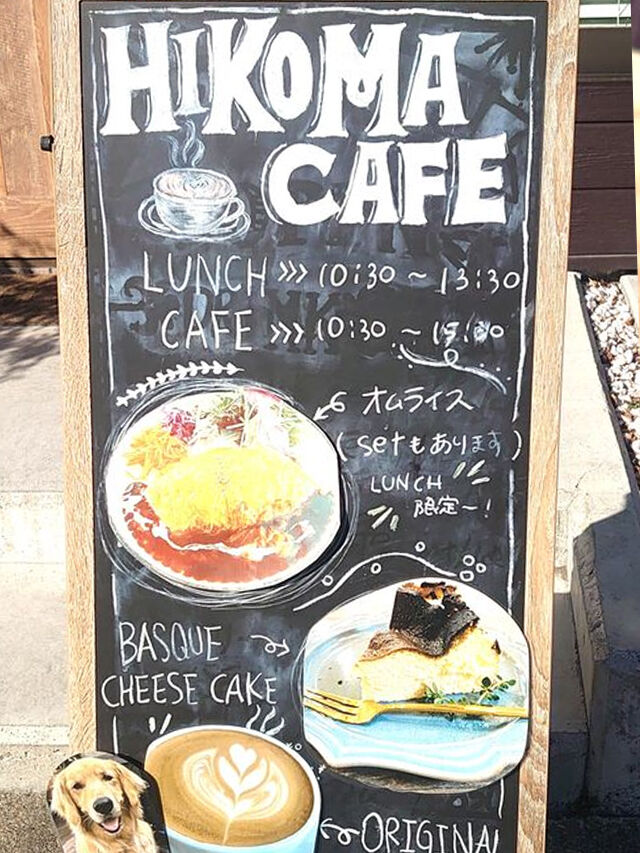 HIKOMA
CAFE
LUNCH >>> 10:30 ~ 13:30
CAFE >>> 10:30 ~
オムライス
(setもあります)
LUNCH
限定〜!
BASQUE
CHEESE CAKE
ORIGINAL